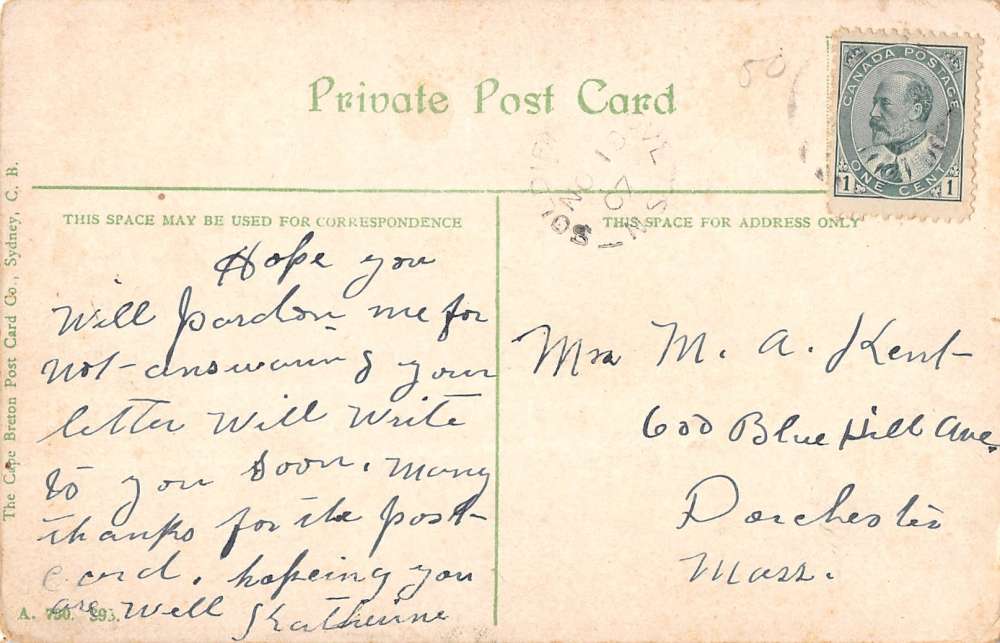 Private Post Card
CANADA POSTAGE
ONE CENT
1 1
THIS SPACE MAY BE USED FOR CORRESPONDENCE
THIS SPACE FOR ADDRESS ONLY
The Cape Breton Post Card Co., Sydney, C. B.
Hope you
Will pardon me for
not answaring your
letter Will Write
to you soon. Many
thanks for the post
card. hopeing you
are Well Katherine
A. 790.
Mrs M. A. Kent
600 Blue Hill Ave.
Dorchester
Mass.
50
NO 1
07
N.S